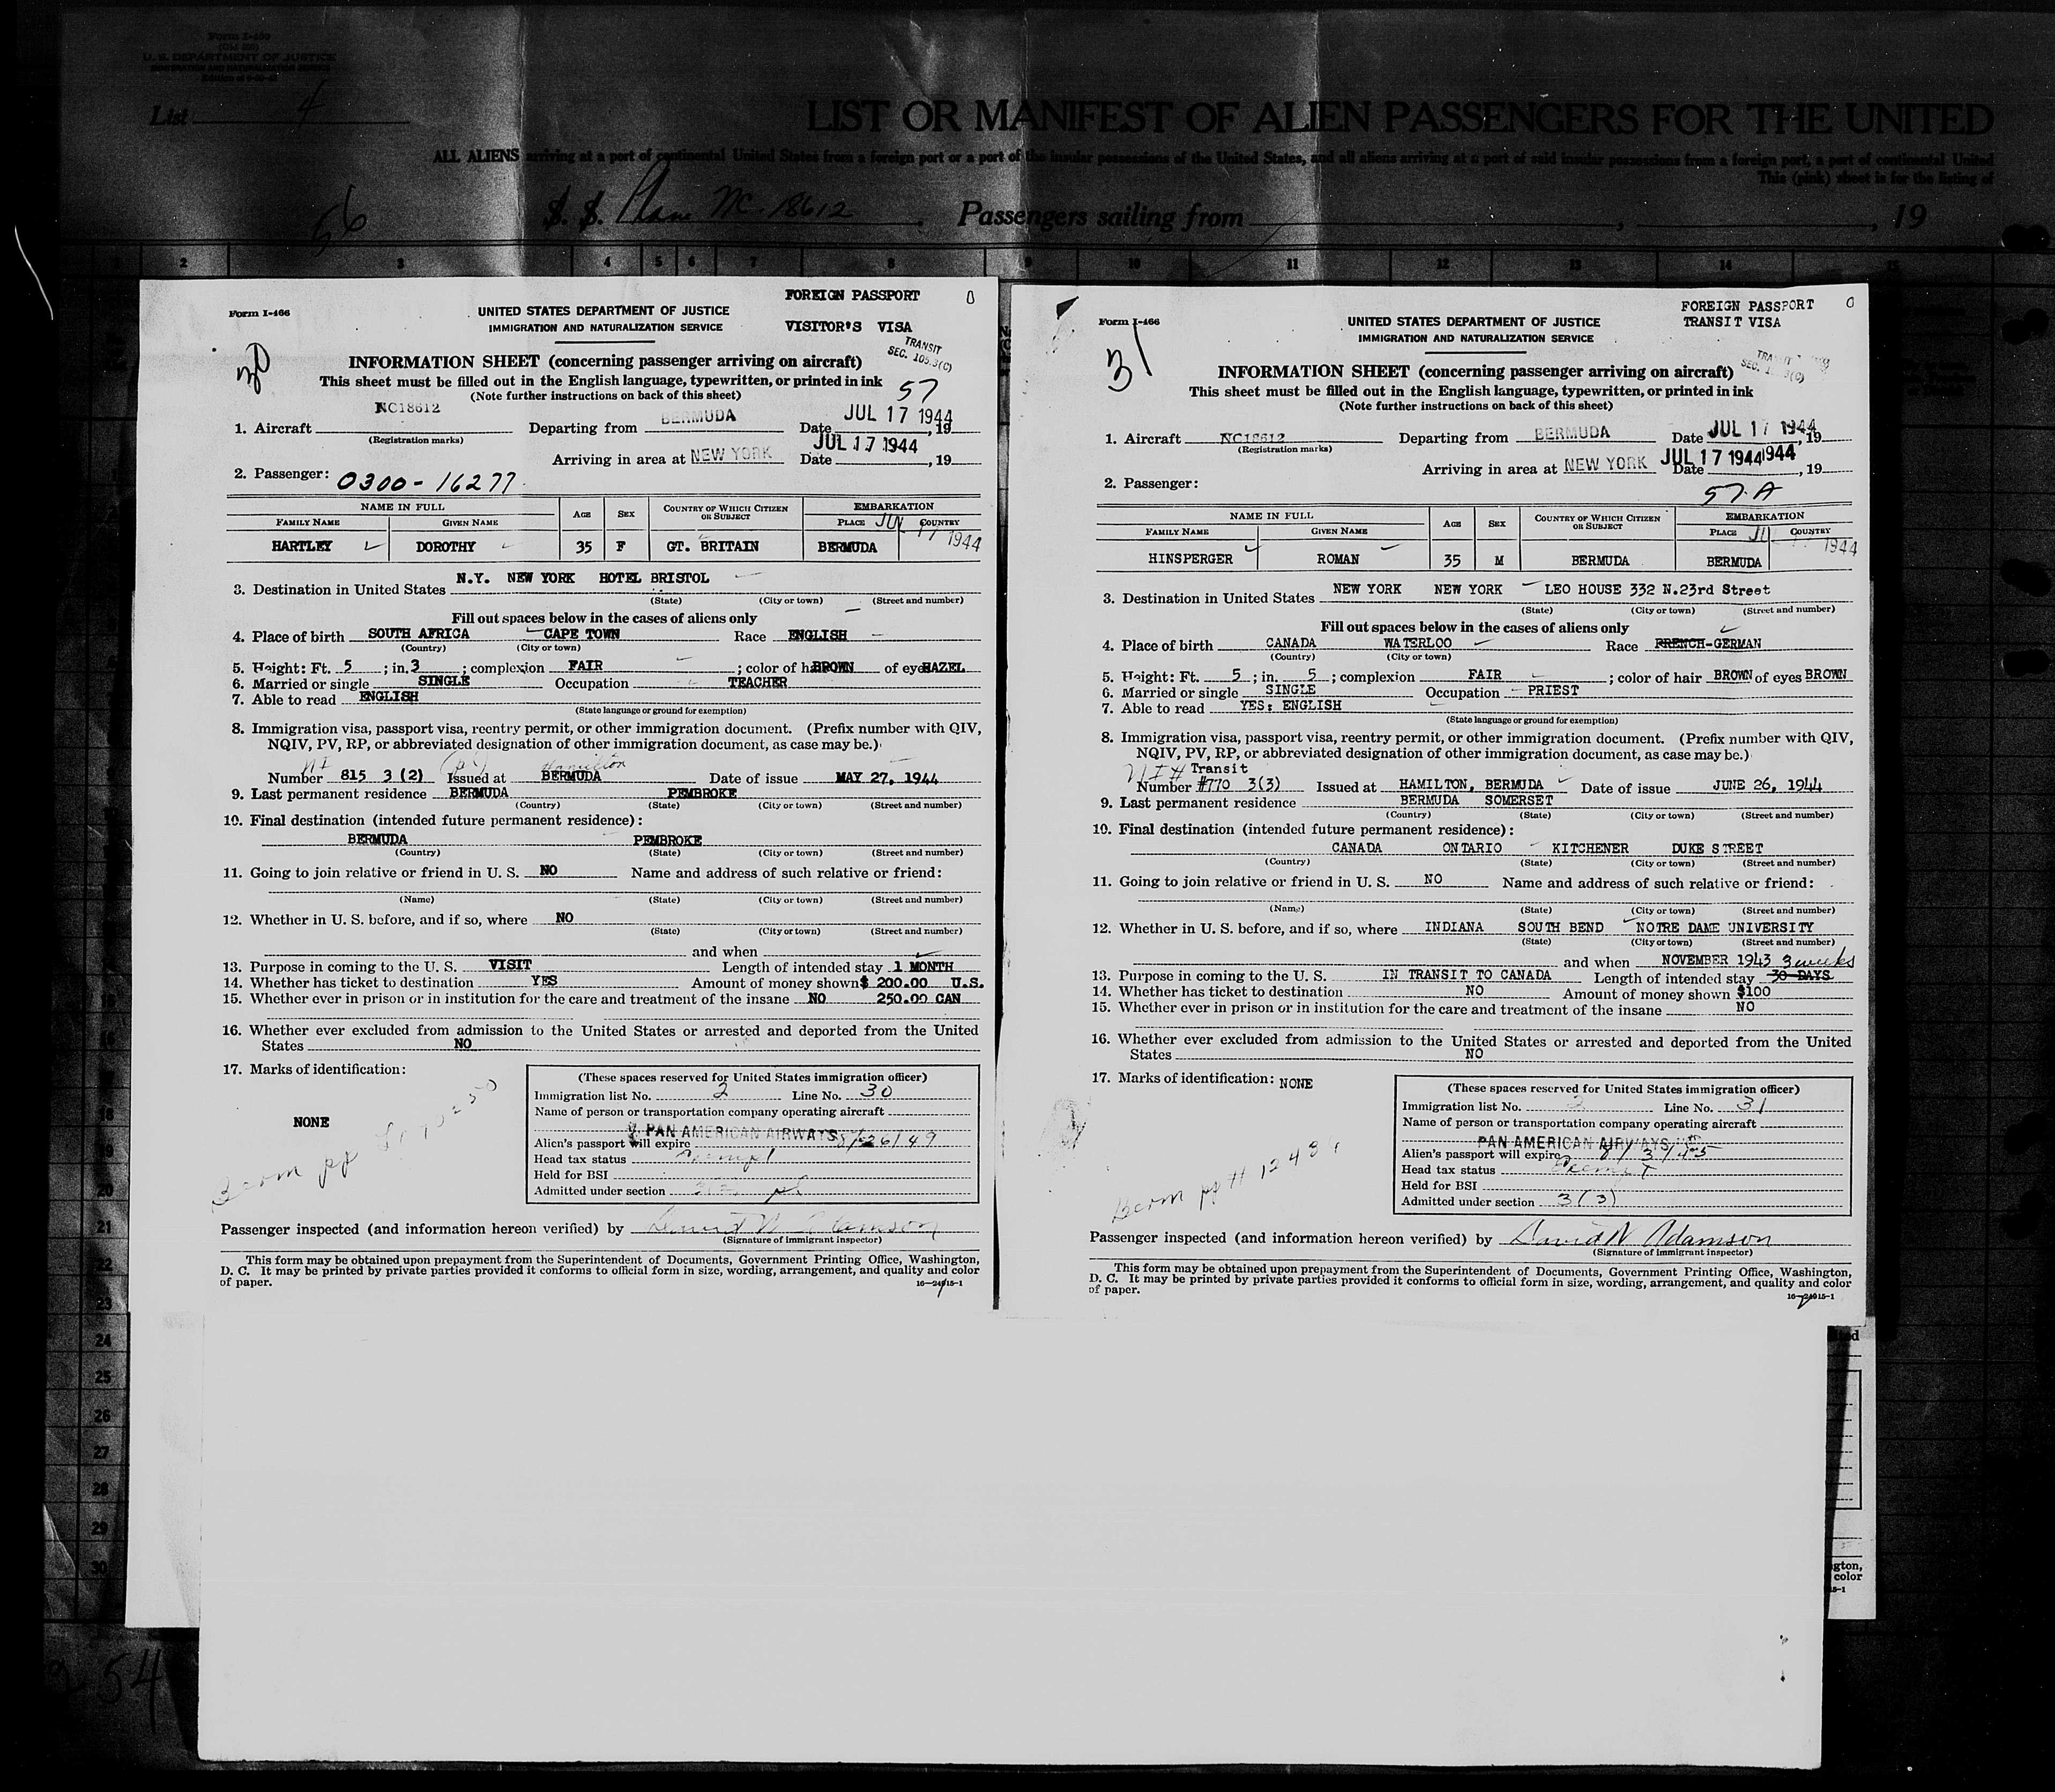 Form I-460
(Old 500)
U. S. DEPARTMENT OF JUSTICE
IMMIGRATION AND NATURALIZATION SERVICE
List 4
LIST OR MANIFEST OF ALIEN PASSENGERS FOR THE UNITED
ALL ALIENS arriving at a port of continental United States from a foreign port or a port of the insular possessions of the United States, and all aliens arriving at a port of said insular possessions from a foreign port, a port of continental United
This (pink) sheet is for the listing of
56
S. S. Plane NC-18612 Passengers sailing from , , 19
2 3 4 5 6 7 8 9 10 11 12 13 14 15
FOREIGN PASSPORT 0
Form I-466
UNITED STATES DEPARTMENT OF JUSTICE
IMMIGRATION AND NATURALIZATION SERVICE
VISITOR'S VISA
TRANSIT
SEC. 105.3(C)
30
INFORMATION SHEET (concerning passenger arriving on aircraft)
This sheet must be filled out in the English language, typewritten, or printed in ink
57
(Note further instructions on back of this sheet)
1. Aircraft NC18612 Departing from BERMUDA Date JUL 17 1944, 19
(Registration marks)
Arriving in area at NEW YORK Date JUL 17 1944, 19
2. Passenger: 0300-16277
NAME IN FULL AGE SEX COUNTRY OF WHICH CITIZEN OR SUBJECT EMBARKATION
FAMILY NAME GIVEN NAME PLACE COUNTRY
JUL 17 1944
HARTLEY DOROTHY 35 F GT. BRITAIN BERMUDA
3. Destination in United States N.Y. NEW YORK HOTEL BRISTOL
(State) (City or town) (Street and number)
Fill out spaces below in the cases of aliens only
4. Place of birth SOUTH AFRICA CAPE TOWN Race ENGLISH
(Country) (City or town)
5. Height: Ft. 5 ; in. 3 ; complexion FAIR ; color of hair BROWN of eyes HAZEL
6. Married or single SINGLE Occupation TEACHER
7. Able to read ENGLISH
(State language or ground for exemption)
8. Immigration visa, passport visa, reentry permit, or other immigration document. (Prefix number with QIV,
NQIV, PV, RP, or abbreviated designation of other immigration document, as case may be.)
NI Hamilton
Number 815 3 (2) Issued at BERMUDA Date of issue MAY 27, 1944
9. Last permanent residence BERMUDA PEMBROKE
(Country) (State) (City or town) (Street and number)
10. Final destination (intended future permanent residence):
BERMUDA PEMBROKE
(Country) (State) (City or town) (Street and number)
11. Going to join relative or friend in U. S. NO Name and address of such relative or friend:
(Name) (State) (City or town) (Street and number)
12. Whether in U. S. before, and if so, where NO
(State) (City or town) (Street and number)
and when
13. Purpose in coming to the U. S. VISIT Length of intended stay 1 MONTH
14. Whether has ticket to destination YES Amount of money shown $ 200.00 U.S.
15. Whether ever in prison or in institution for the care and treatment of the insane NO 250.00 CAN
16. Whether ever excluded from admission to the United States or arrested and deported from the United
States NO
17. Marks of identification:
NONE
Berm pp
(These spaces reserved for United States immigration officer)
Immigration list No. 2 Line No. 30
Name of person or transportation company operating aircraft
PAN AMERICAN AIRWAYS
Alien's passport will expire 5/26/49
Head tax status Exempt
Held for BSI
Admitted under section
Passenger inspected (and information hereon verified) by
(Signature of immigrant inspector)
This form may be obtained upon prepayment from the Superintendent of Documents, Government Printing Office, Washington,
D. C. It may be printed by private parties provided it conforms to official form in size, wording, arrangement, and quality and color
of paper.
16-24915-1
FOREIGN PASSPORT 0
TRANSIT VISA
Form I-466
UNITED STATES DEPARTMENT OF JUSTICE
IMMIGRATION AND NATURALIZATION SERVICE
31
INFORMATION SHEET (concerning passenger arriving on aircraft)
This sheet must be filled out in the English language, typewritten, or printed in ink
(Note further instructions on back of this sheet)
1. Aircraft NC18612 Departing from BERMUDA Date JUL 17 1944, 19
(Registration marks)
Arriving in area at NEW YORK Date JUL 17 1944 1944, 19
2. Passenger:
57-A
NAME IN FULL AGE SEX COUNTRY OF WHICH CITIZEN OR SUBJECT EMBARKATION
FAMILY NAME GIVEN NAME PLACE COUNTRY
1944
HINSPERGER ROMAN 35 M BERMUDA BERMUDA
3. Destination in United States NEW YORK NEW YORK LEO HOUSE 332 N.23rd Street
(State) (City or town) (Street and number)
Fill out spaces below in the cases of aliens only
4. Place of birth CANADA WATERLOO Race FRENCH-GERMAN
(Country) (City or town)
5. Height: Ft. 5 ; in. 5 ; complexion FAIR ; color of hair BROWN of eyes BROWN
6. Married or single SINGLE Occupation PRIEST
7. Able to read YES: ENGLISH
(State language or ground for exemption)
8. Immigration visa, passport visa, reentry permit, or other immigration document. (Prefix number with QIV,
NQIV, PV, RP, or abbreviated designation of other immigration document, as case may be.)
NI# Transit
Number #770 3(3) Issued at HAMILTON, BERMUDA Date of issue JUNE 26, 1944
9. Last permanent residence BERMUDA SOMERSET
(Country) (State) (City or town) (Street and number)
10. Final destination (intended future permanent residence):
CANADA ONTARIO KITCHENER DUKE STREET
(Country) (State) (City or town) (Street and number)
11. Going to join relative or friend in U. S. NO Name and address of such relative or friend:
(Name) (State) (City or town) (Street and number)
12. Whether in U. S. before, and if so, where INDIANA SOUTH BEND NOTRE DAME UNIVERSITY
(State) (City or town) (Street and number)
and when NOVEMBER 1943 3 weeks
13. Purpose in coming to the U. S. IN TRANSIT TO CANADA Length of intended stay 30 DAYS
14. Whether has ticket to destination NO Amount of money shown $100
15. Whether ever in prison or in institution for the care and treatment of the insane NO
16. Whether ever excluded from admission to the United States or arrested and deported from the United
States NO
17. Marks of identification: NONE
Berm pp #
(These spaces reserved for United States immigration officer)
Immigration list No. 2 Line No. 31
Name of person or transportation company operating aircraft
PAN AMERICAN AIRWAYS
Alien's passport will expire
Head tax status Exempt
Held for BSI
Admitted under section 3(3)
Passenger inspected (and information hereon verified) by David N Adamson
(Signature of immigrant inspector)
This form may be obtained upon prepayment from the Superintendent of Documents, Government Printing Office, Washington,
D. C. It may be printed by private parties provided it conforms to official form in size, wording, arrangement, and quality and color
of paper.
16-24915-1
21
22
23
24
25
26
27
28
29
30
gton,
color
5-1
54